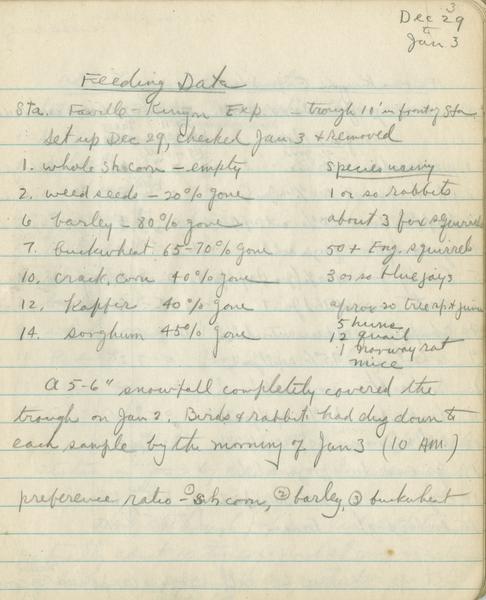 Dec 29
to
Jan 3
Feeding Data
Sta. Faville-Kinyon Exp - trough 10' in front of Sta
set up Dec 29, checked Jan 3 & removed
1. whole sh corn - empty
species using
2. weed seeds - 20% gone
1 or so rabbits
6 barley - 80% gone
about 3 fox squirrels
7. buckwheat 65-70% gone
50+ Eng. squirrels
10. crack, corn 40% gone
3 or so bluejays
12. Kaffir 40% gone
aprox 20 tree sp & junco
14. sorghum 45% gone
5 huns
12 quail
1 Norway rat
mice
A 5-6" snowfall completely covered the
trough on Jan 2. Birds & rabbits had dug down to
each sample by the morning of Jan 3 (10 AM)
preference ratio - ① sh corn, ② barley, ③ buckwheat